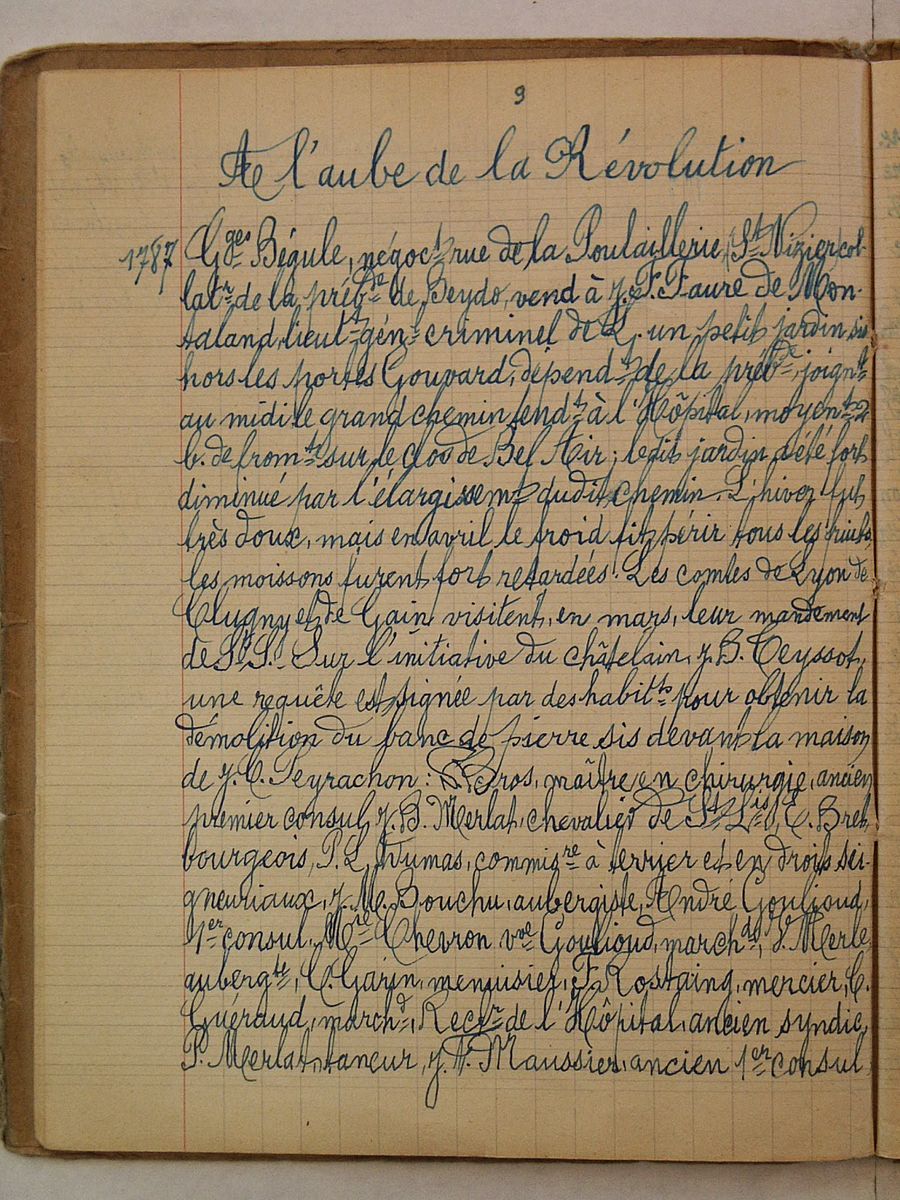 9
A l'aube de la Révolution
1787 Gges Bégule, négoct rue de la Poulaillerie (St Nizier) col-
latr de la prébde de Beydo, vend à J.F. Faure de Mon-
taland, lieutt gén criminel de L. un petit jardin sis
hors les portes Gouvard, dépendt de la prébde, joignt
au midi le grand chemin tendt à l'Hôpital, moyent 2
b. de fromt sur le clos de Bel Air ; ledit jardin a été fort
diminué par l'élargissemt dudit chemin. L'hiver fut
très doux, mais en avril le froid fit périr tous les fruits,
les moissons furent fort retardées. Les comtes de Lyon de
Clugny et de Gain visitent, en mars, leur mandement
de St S. Sur l'initiative du châtelain, J.B. Teyssot,
une requête est signée par des habitts pour obtenir la
démolition du banc de pierre sis devant la maison
de J.C. Peyrachon : Gros, maître en chirurgie, ancien
premier consul, J.B. Merlat, chevalier de St Lis, C. Bret
bourgeois, P.L. Dumas, commisre à terrier et en droits sei-
gneuriaux, J.M. Bouchu, aubergiste, André Goulioud,
1er consul, Mre Chevron vve Goulioud, marchde, V. Merle
aubergte, C. Garin, menuisier, F. Rostaing, mercier, C.
Guéraud, marchd, Rectr de l'Hôpital, ancien syndic,
P. Merlat, taneur, J.A. Maussier, ancien 1er consul